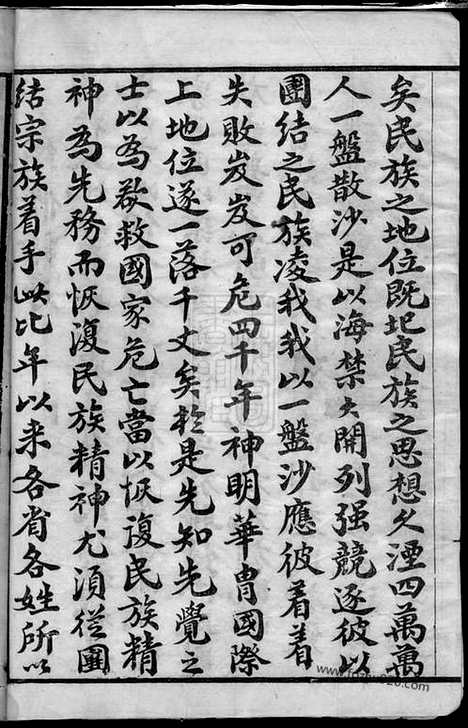 矣民族之地位既圮民族之思想久湮四萬萬
人一盤散沙是以海禁大開列强競逐彼以
團結之民族凌我我以一盤沙應彼着着
失敗岌岌可危四千年神明華胄國際
上地位遂一落千丈矣於是先知先覺之
士以為欲救國家危亡當以恢復民族精
神為先務而恢復民族精神尤須從團
结宗族着手此比年以来各省各姓所以